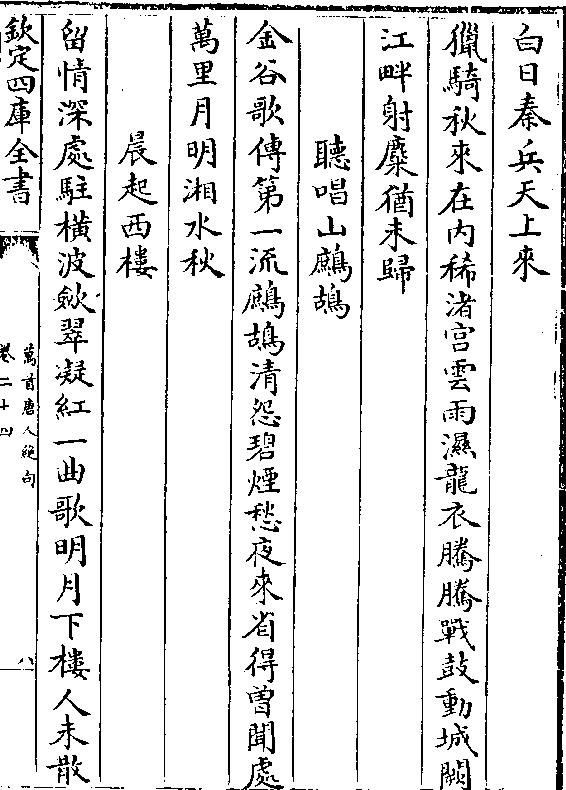 白日秦兵天上來
獵騎秋來在内稀渚宫雲雨濕龍衣騰騰戰鼓動城闕
江畔射麋猶未歸
聽唱山鷓鴣
金谷歌傳第一流鷓鴣清怨碧煙愁夜來省得曽聞處
萬里月明湘水秋
晨起西樓
留情深處駐横波歛翠凝紅一曲歌明月下樓人未散
欽定四庫全書
萬首唐人絶句
卷二十四
八